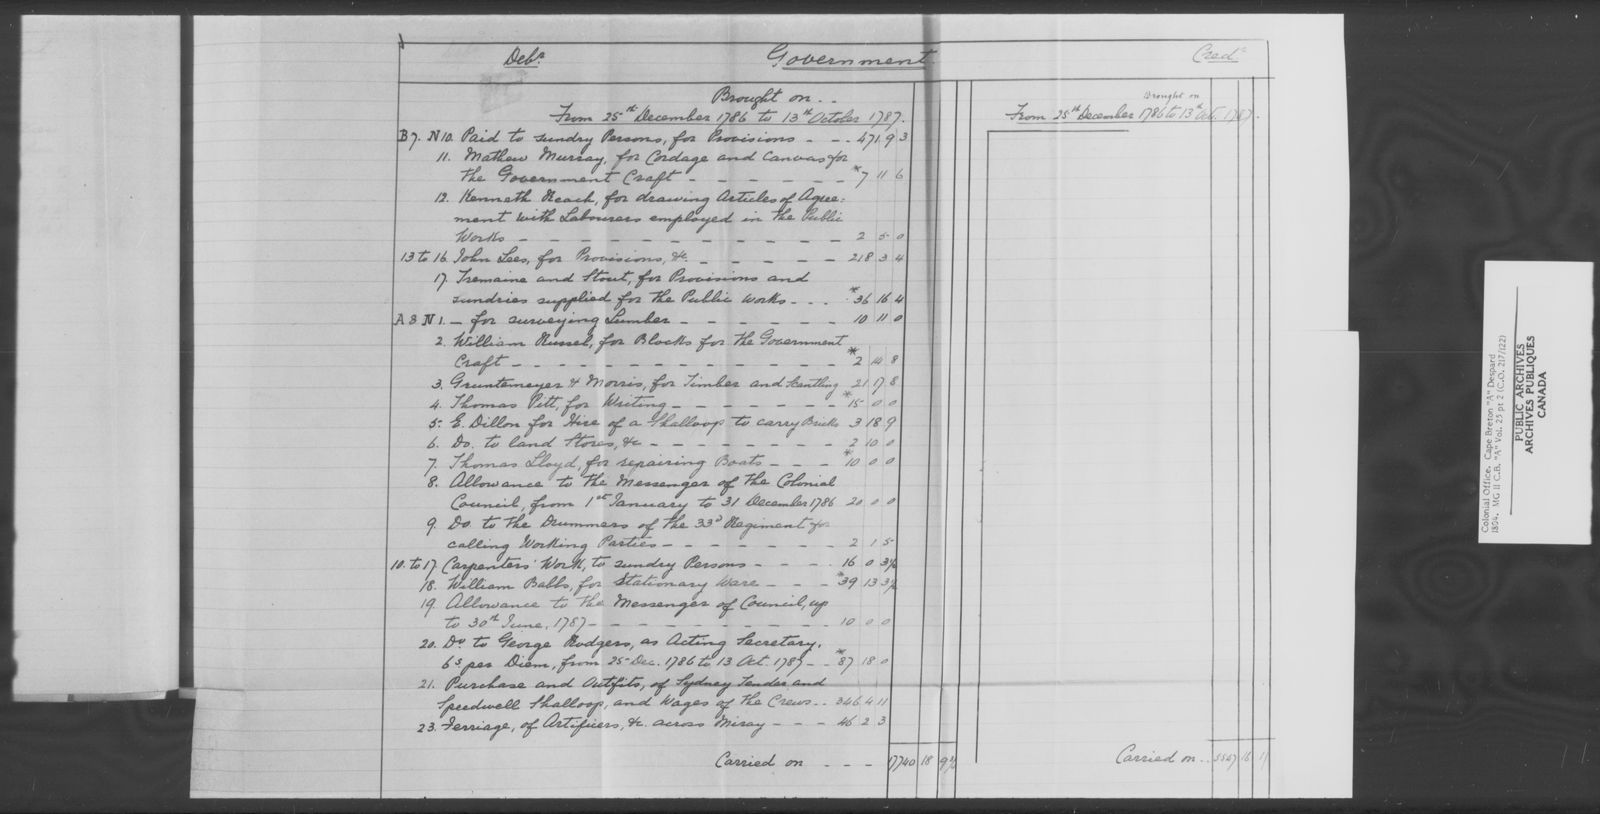 Debr. Government Credr.
Brought on . .
From 25th December 1786 to 13th October 1787.
B 7. N 10. Paid to sundry Persons, for Provisions - - - 471 9 3
11. Mathew Murray, for Cordage and Canvas for
the Government Craft - - - - - - - *7 11 6
12. Kenneth Reach, for drawing Articles of Agree:
ment with Labourers employed in the Public
Works - - - - - - - - - - 2 5 0
13 to 16 John Lees, for Provisions, &c. - - - - - - 218 3 4
17. Tremaine and Stout, for Provisions and
sundries supplied for the Public Works - - - *36 16 4
A 8 N 1. - for surveying Lumber - - - - - - 10 11 0
2. William Russel, for Blocks for the Government
Craft - - - - - - - - - - *2 14 8
3. Gruntemeyer & Morris, for Timber and Scantling 21 17 8
4. Thomas Pitt, for Writing - - - - - - *15 0 0
5. E. Dillon for Hire of a Shalloop to carry Bricks 3 18 9
6. Do. to land Stores, &c - - - - - - - - 2 10 0
7. Thomas Lloyd, for repairing Boats - - - *10 0 0
8. Allowance to the Messenger of the Colonial
Council, from 1st January to 31 December 1786 20 0 0
9. Do. to the Drummers of the 33d Regiment for
calling Working Parties - - - - - - - 2 1 5
10. to 17. Carpenters' Work, to sundry Persons - - - - 16 0 3½
18. William Babbs, for Stationary Ware - - - *39 13 3½
19. Allowance to the Messenger of Council, up
to 30th June, 1787 - - - - - - - - 10 0 0
20. Do to George Rodgers, as Acting Secretary,
6s per Diem, from 25 Dec. 1786 to 13 Oct. 1787 - - *87 18 0
21. Purchase and Outfits, of Sydney Tender and
Speedwell Shalloop, and Wages of the Crews . . 346 4 11
23. Ferriage, of Artificers, &c. across Miray - - - 46 2 3
Carried on - - - 17740 18 9½
Brought on
From 25th December 1786 to 13th Oct. 1787.
Carried on . . 5567 16
Colonial Office. Cape Breton "A" Despard
1804. MG 11 C.B. "A" Vol. 25 pt 2 (C.O. 217/122)
PUBLIC ARCHIVES
ARCHIVES PUBLIQUES
CANADA